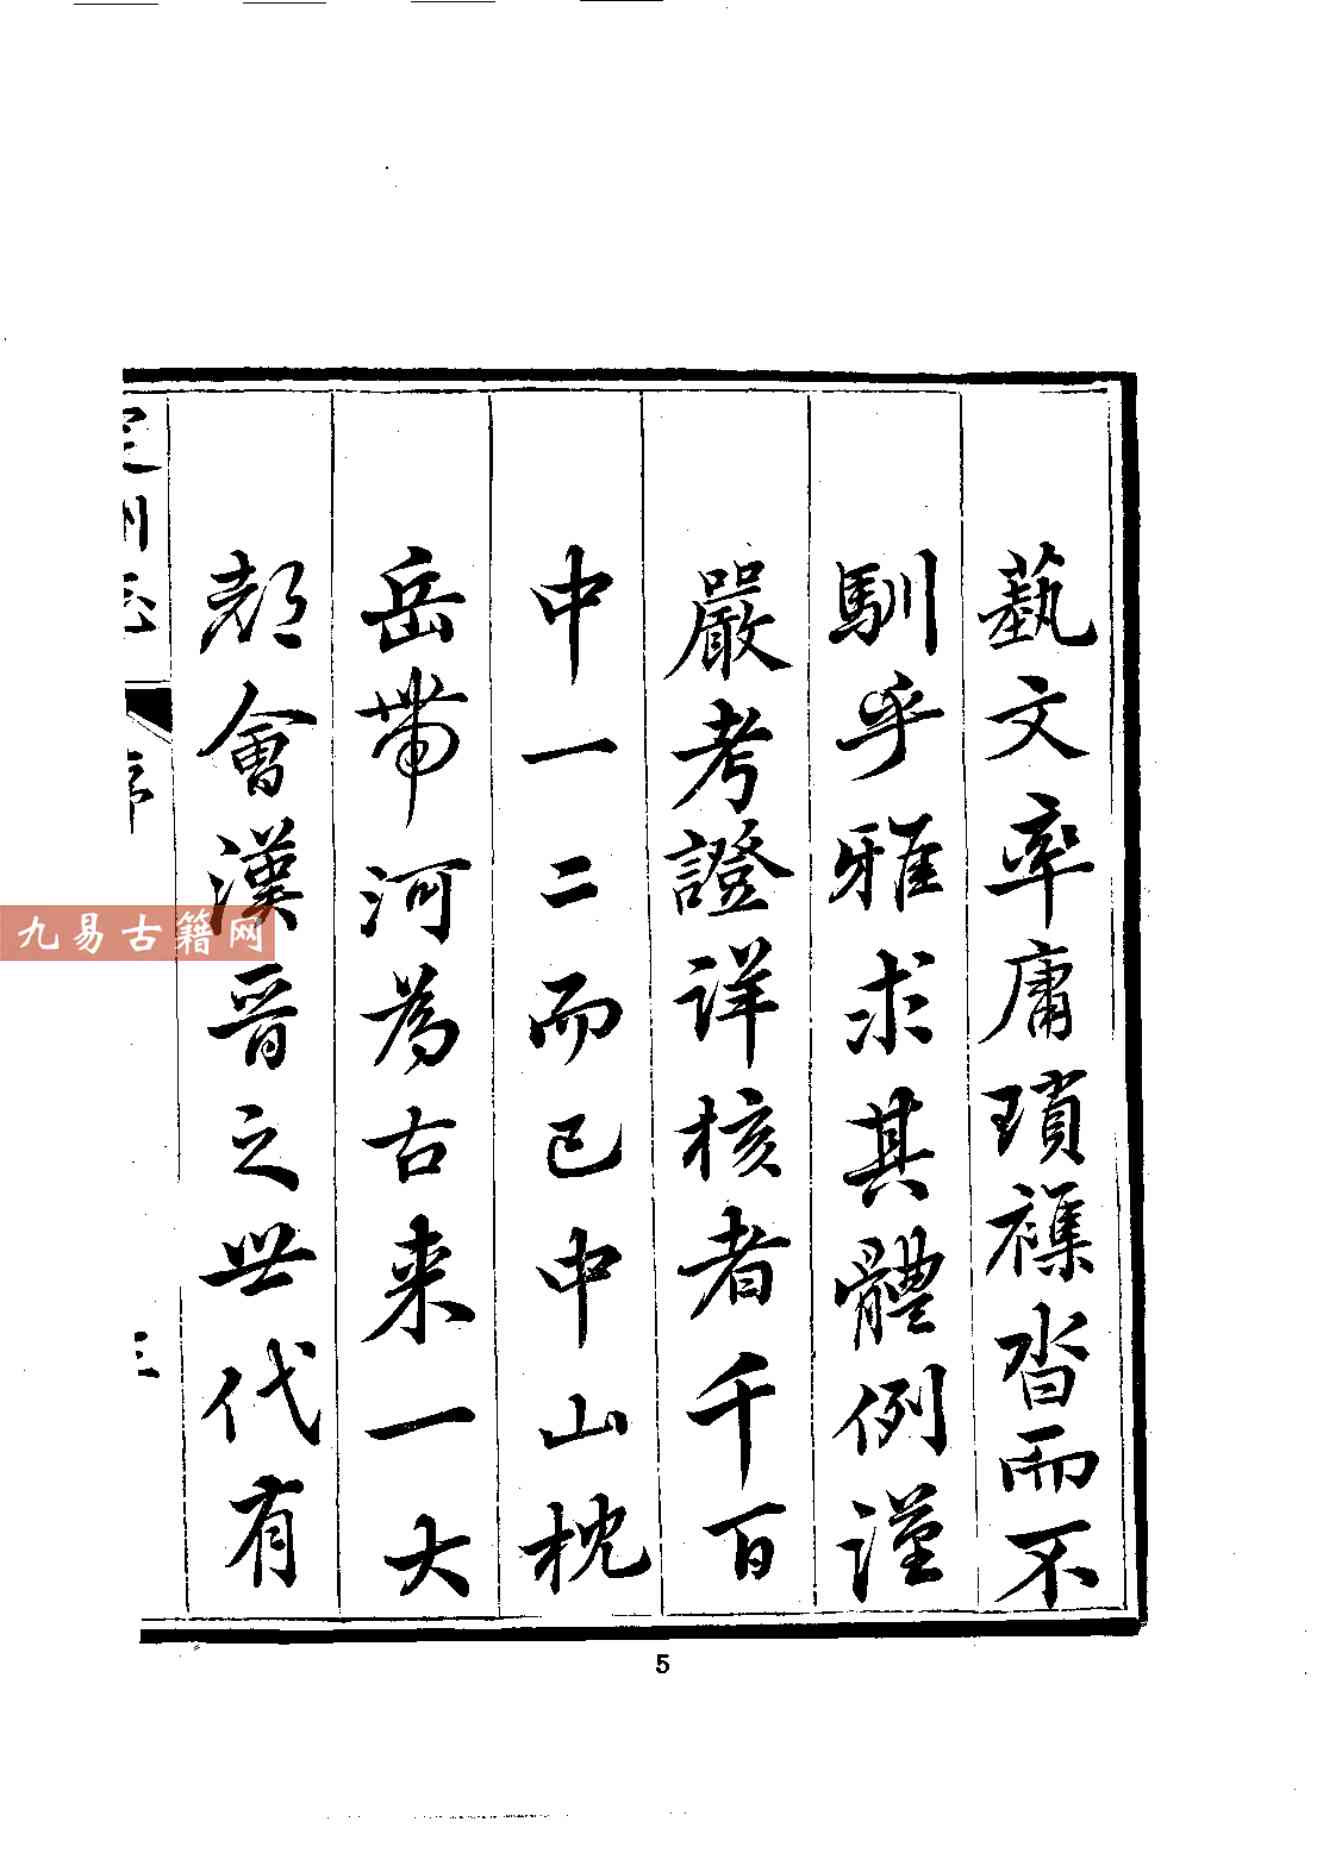 藝文率庸瑣襍沓而不
馴乎雅求其體例謹
嚴考證詳核者千百
中一二而已中山枕
岳帶河為古来一大
都會漢晉之世代有
定州志
序
三
九易古籍网
5